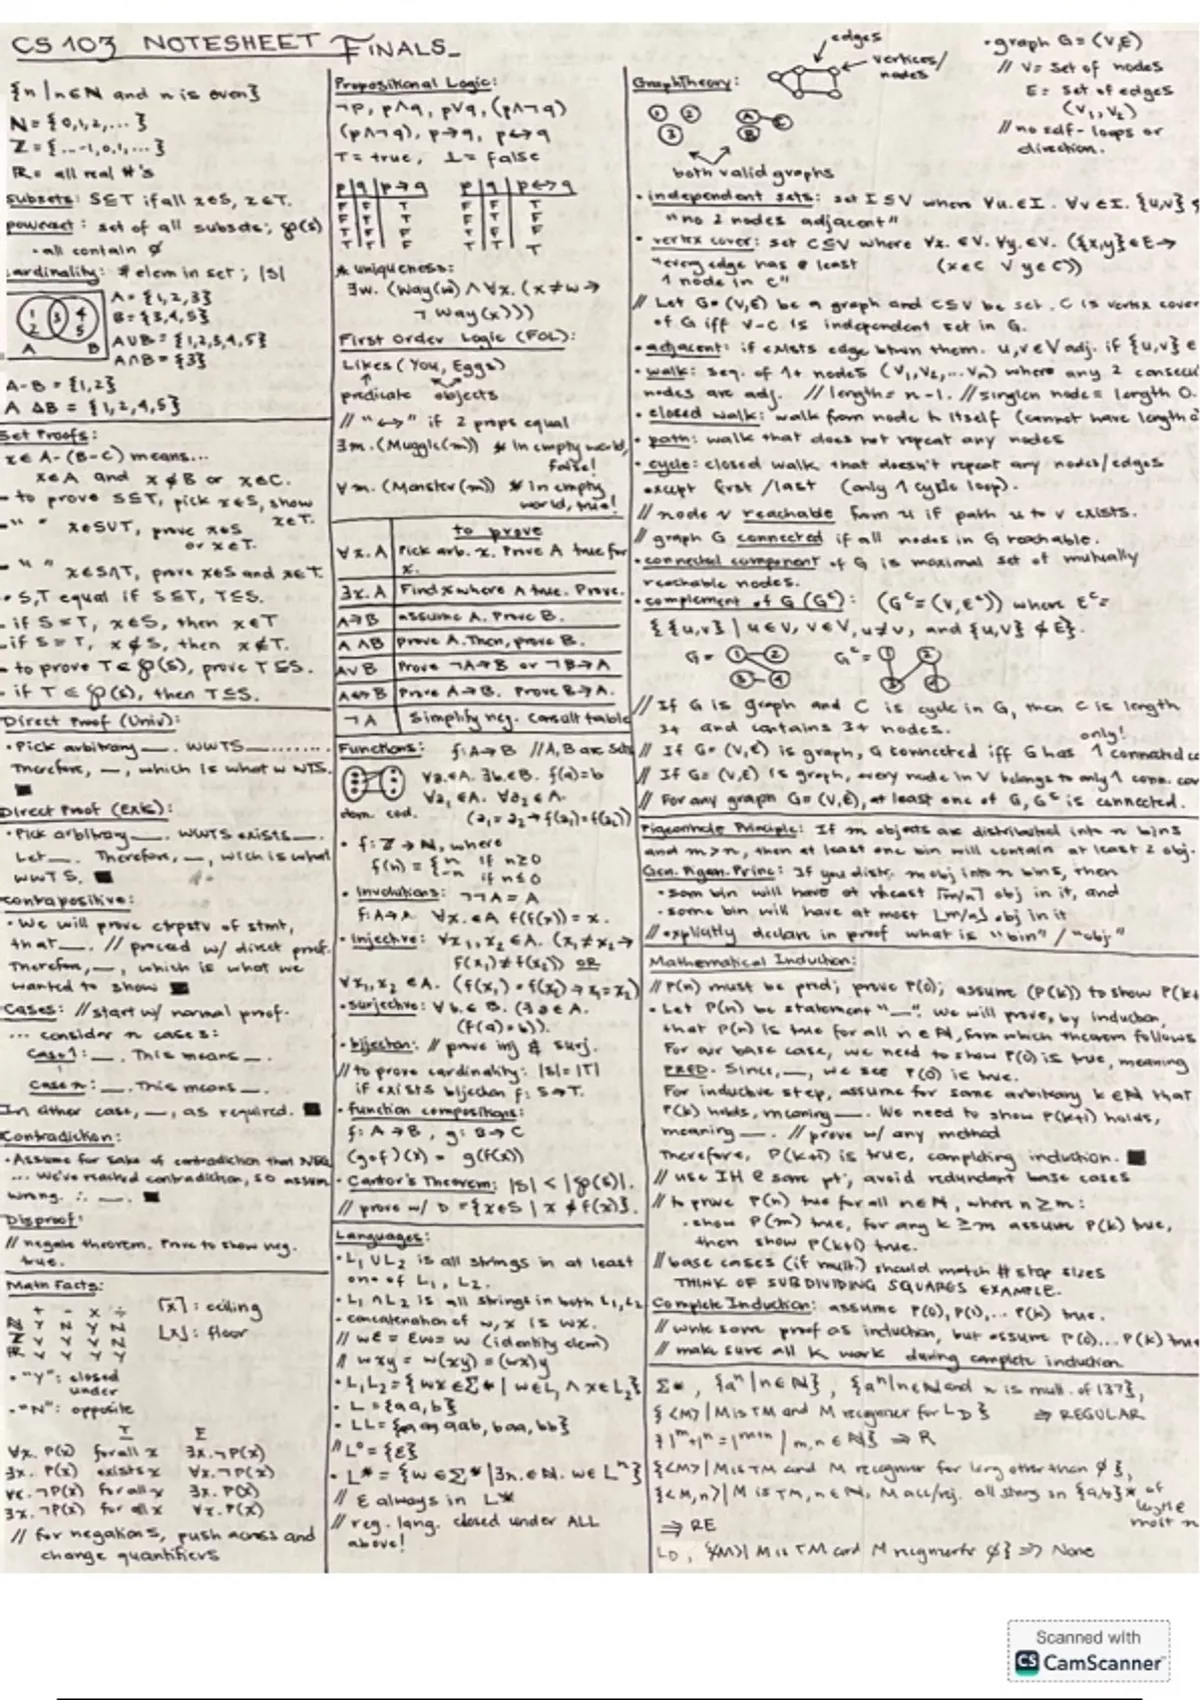 CS 103 NOTESHEET FINALS_
{n | n∈ℕ and n is even}
ℕ = {0,1,2,...}
ℤ = {...-1,0,1,...}
ℝ = all real #'s
subsets: S⊆T if all x∈S, x∈T.
powerset: set of all subsets; ℘(S)
• all contain ∅
cardinality: # elem in set; |S|
A = {1,2,3}
B = {3,4,5}
A∪B = {1,2,3,4,5}
A∩B = {3}
1 2 3 4 5
A B
A-B = {1,2}
A Δ B = {1,2,4,5}
Set Proofs:
x∈A-(B-C) means...
x∈A and x∉B or x∈C.
- to prove S⊆T, pick x∈S, show x∈T.
- " " x∈S∪T, prove x∈S or x∈T.
- " " x∈S∩T, prove x∈S and x∈T.
• S,T equal if S⊆T, T⊆S.
- if S=T, x∈S, then x∈T
- if S=T, x∉S, then x∉T.
- to prove T∈℘(S), prove T⊆S.
- if T∈℘(S), then T⊆S.
Direct Proof (Univ):
• Pick arbitrary __. WWTS ........
Therefore, __, which is what w WTS.
■
Direct Proof (Exis):
• Pick arbitrary __. WWTS exists __.
Let __. Therefore, __, wich is what
WWTS. ■
Contrapositive:
• We will prove ctrpstv of stmt,
that __. // proceed w/ direct proof.
Therefore, __, which is what we
wanted to show ■
Cases: // start w/ normal proof.
... consider n cases:
Case 1: __. This means __.
Case n: __. This means __.
In either case, __, as required. ■
Contradiction:
• Assume for sake of contradiction that NEG
... We've reached contradiction, so assum
wrong. ∴ __. ■
Disproof:
// negate theorem. Prove to show neg.
true.
Math Facts:
+ - × ÷
ℕ Y N Y N
ℤ Y Y Y N
ℝ Y Y Y Y
⌈x⌉: ceiling
⌊x⌋: floor
• "Y": closed under
• "N": opposite
∀x. P(x) for all x ∃x.¬P(x)
∃x. P(x) exists x ∀x.¬P(x)
∀x.¬P(x) for all x ∃x. P(x)
∃x.¬P(x) for all x ∀x. P(x)
// for negations, push across and
change quantifiers
Propositional Logic:
¬p, p∧q, p∨q, (p∧¬q)
(p∧¬q), p→q, p↔q
⊤ = true, ⊥ = false
p | q | p→q p | q | p↔q
F F T F F T
F T T F T F
T F F T F F
T T T T T T
* uniqueness:
∃w. (Way(w) ∧ ∀x. (x≠w →
¬Way(x)))
First Order Logic (FOL):
Likes (You, Eggs)
predicate objects
// "↔" if 2 props equal
∃m. (Muggle(m)) * In empty world, false!
∀m. (Monster(m)) * In empty world, true!
to prove
∀x. A | Pick arb. x. Prove A true for x.
∃x. A | Find x where A true. Prove.
A→B | assume A. Prove B.
A∧B | prove A. Then, prove B.
A∨B | Prove ¬A→B or ¬B→A
A↔B | Prove A→B. Prove B→A.
¬A | Simplify neg. Consult table
Functions: f: A→B // A,B are sets
∀a∈A. ∃b∈B. f(a)=b
∀a₁∈A. ∀a₂∈A.
dom. cod. (a₁=a₂→f(a₁)=f(a₂))
• f: ℤ→ℕ, where
f(n) = {n if n≥0
-n if n≤0
• Involutions: ¬¬A = A
f: A→A ∀x.∈A f(f(x)) = x.
• Injective: ∀x₁,x₂∈A. (x₁≠x₂→
f(x₁)≠f(x₂)) OR
∀x₁,x₂∈A. (f(x₁)=f(x₂)→x₁=x₂)
• surjective: ∀b∈B. (∃a∈A.
(f(a)=b)).
• bijection: // prove inj & surj.
// to prove cardinality: |S|=|T|
if exists bijection f: S→T.
• function compositions:
f: A→B, g: B→C
(g∘f)(x) = g(f(x))
• Cantor's Theorem: |S| < |℘(S)|.
// prove w/ D = {x∈S | x∉f(x)}.
Languages:
• L₁∪L₂ is all strings in at least
one of L₁, L₂.
• L₁∩L₂ is all strings in both L₁,L₂
• concatenation of w,x is wx.
// wε = εw = w (identity elem)
// wxy = w(xy) = (wx)y
• L₁L₂ = {wx∈Σ* | w∈L₁ ∧ x∈L₂}
• L = {aa, b}
• LL = {aaaa, aab, baa, bb}
// L⁰ = {ε}
• L* = {w∈Σ* | ∃n.∈ℕ. w∈Lⁿ}
// ε always in L*
// reg. lang. closed under ALL
above!
Graph Theory:
edges
vertices/nodes
both valid graphs
• graph G = (V,E)
// V = set of nodes
E = set of edges
(V₁,V₂)
// no self-loops or
direction.
• independent sets: set I⊆V where ∀u.∈I. ∀v∈I. {u,v} ∉
"no 2 nodes adjacent"
• vertex cover: set C⊆V where ∀x.∈V. ∀y.∈V. ({x,y}∈E→
"every edge has @ least (x∈C ∨ y∈C))
1 node in C"
// Let G=(V,E) be a graph and C⊆V be set. C is vertex cover
of G iff V-C is independent set in G.
• adjacent: if exists edge btwn them. u,v∈V adj. if {u,v} ∈
• walk: seq. of 1+ nodes (V₁,V₂,...Vₙ) where any 2 consecu
nodes are adj. // length = n-1. // singlen node = length 0.
• closed walk: walk from node to itself (cannot have length 0
• path: walk that does not repeat any nodes
• cycle: closed walk that doesn't repeat any nodes/edges
except first/last (only 1 cycle loop).
// node v reachable from u if path u to v exists.
// graph G connected if all nodes in G reachable.
• connected component of G is maximal set of mutually
reachable nodes.
• complement of G (Gᶜ): (Gᶜ=(V,Eᶜ)) where Eᶜ=
{{u,v} | u∈V, v∈V, u≠v, and {u,v}∉E}.
G = 1 2 3 4 Gᶜ = 1 2 3 4
// If G is graph and C is cycle in G, then C is length
3+ and contains 3+ nodes.
only!
// If G=(V,E) is graph, G connected iff G has 1 connected co
// If G=(V,E) is graph, every node in V belongs to only 1 conn. com
// For any graph G=(V,E), at least one of G, Gᶜ is connected.
Pigeonhole Principle: If m objects are distributed into n bins
and m>n, then at least one bin will contain at least 2 obj.
Gen. Pigeon. Princ: If you distr. m obj into n bins, then
• som bin will have at least ⌈m/n⌉ obj in it, and
• some bin will have at most ⌊m/n⌋ obj in it
// explicitly declare in proof what is "bin" / "obj."
Mathematical Induction:
// P(n) must be pred; prove P(0); assume (P(k)) to show P(k+
• Let P(n) be statement "__". We will prove, by induction,
that P(n) is true for all n∈ℕ, from which theorem follows
For our base case, we need to show P(0) is true, meaning
PRED. Since, __, we see P(0) is true.
For inductive step, assume for some arbitrary k∈ℕ that
P(k) holds, meaning __. We need to show P(k+1) holds,
meaning __. // prove w/ any method
Therefore, P(k+1) is true, completing induction. ■
// use IH @ some pt, avoid redundant base cases
// to prove P(n) true for all n∈ℕ, where n≥m:
• show P(m) true, for any k≥m assume P(k) true,
then show P(k+1) true.
// base cases (if mult.) should match # step sizes
THINK OF SUBDIVIDING SQUARES EXAMPLE.
Complete Induction: assume P(0), P(1),... P(k) true.
// write same proof as induction, but assume P(0)... P(k) true
// make sure all k work during complete induction
Σ*, {aⁿ | n∈ℕ}, {aⁿ | n∈ℕ and n is mult. of 137},
{<M> | M is TM and M recognizer for L_D} ⇒ REGULAR
{1ᵐ+1ⁿ=1ᵐ⁺ⁿ | m,n∈ℕ} ⇒ R
{<M> | M is TM and M recognizer for lang other than ∅},
{<M,n> | M is TM, n∈ℕ, M acc/rej. all strings in {a,b}* of
most n
⇒ RE
L_D, {<M> | M is TM and M recognizer for ∅} ⇒ None
Scanned with
CS CamScanner